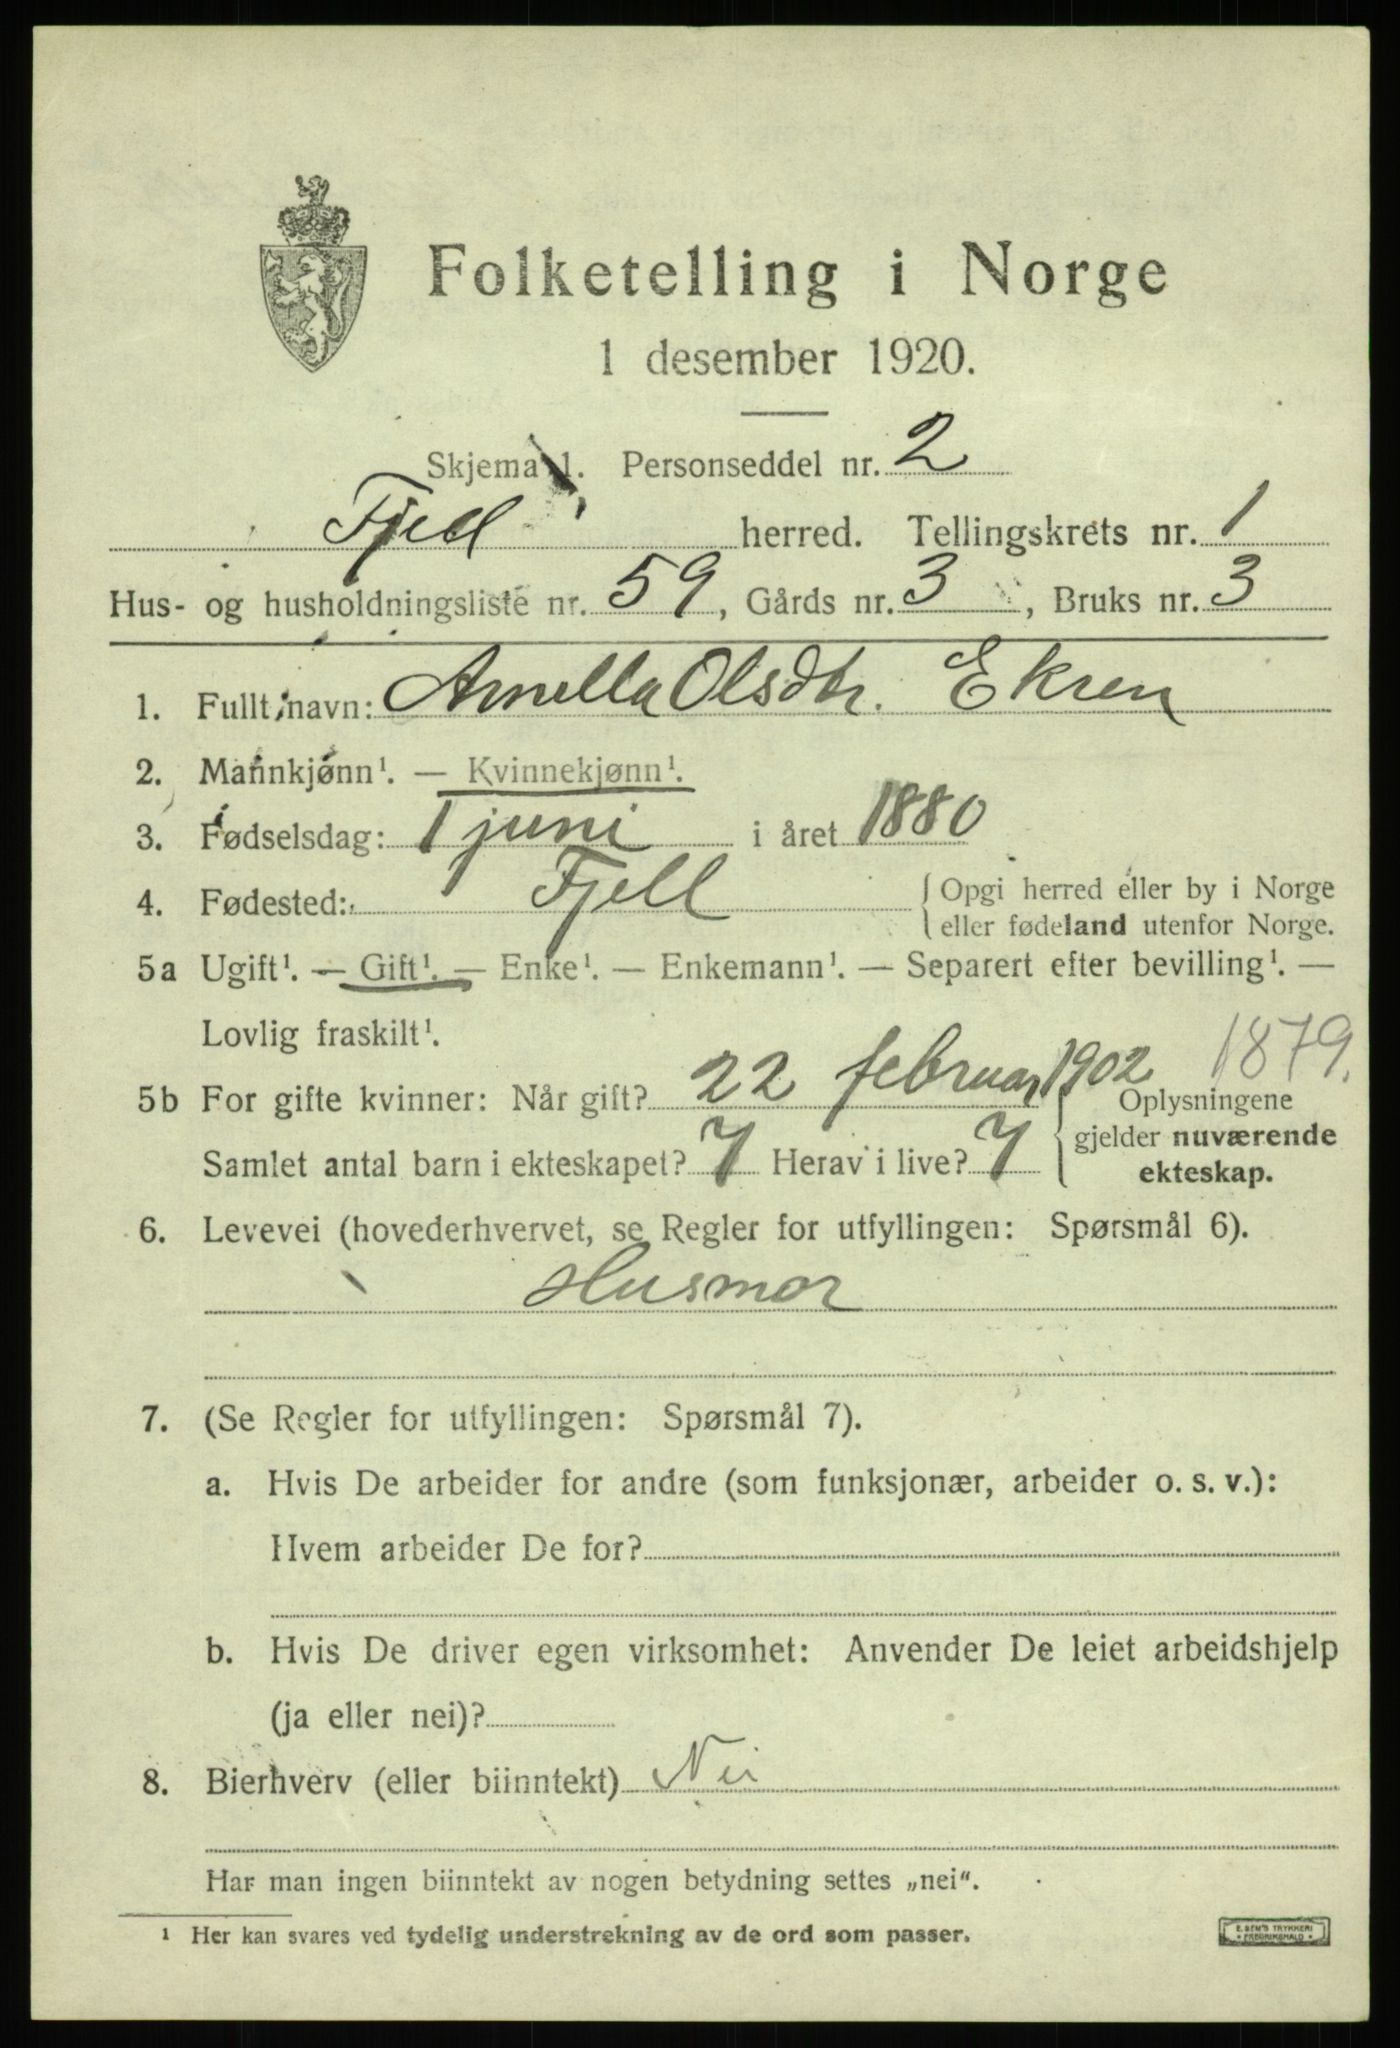 Folketelling i Norge
1 desember 1920.
Skjema 1. Personseddel nr. 2
Fjell herred. Tellingskrets nr. 1
Hus- og husholdningsliste nr. 59, Gårds nr. 3, Bruks nr. 3
1. Fullt navn: Arnella Olsdtr. Ekren
2. Mannkjønn¹. — Kvinnekjønn¹.
3. Fødselsdag: 1 juni i året 1880
4. Fødested: Fjell { Opgi herred eller by i Norge
eller fødeland utenfor Norge.
5a Ugift¹. — Gift¹. — Enke¹. — Enkemann¹. — Separert efter bevilling¹. —
Lovlig fraskilt¹.
1879.
5b For gifte kvinner: Når gift? 22 februar 1902 { Oplysningene
gjelder nuværende
ekteskap.
Samlet antal barn i ekteskapet? 7 Herav i live? 7
6. Levevei (hovederhvervet, se Regler for utfyllingen: Spørsmål 6).
Husmor
7. (Se Regler for utfyllingen: Spørsmål 7).
a. Hvis De arbeider for andre (som funksjonær, arbeider o. s. v.):
Hvem arbeider De for?
b. Hvis De driver egen virksomhet: Anvender De leiet arbeidshjelp
(ja eller nei)?
8. Bierhverv (eller biinntekt) Nei
Har man ingen biinntekt av nogen betydning settes „nei“.
¹ Her kan svares ved tydelig understrekning av de ord som passer.
E. SEM'S TRYKKERI
FREDRIKSHALD